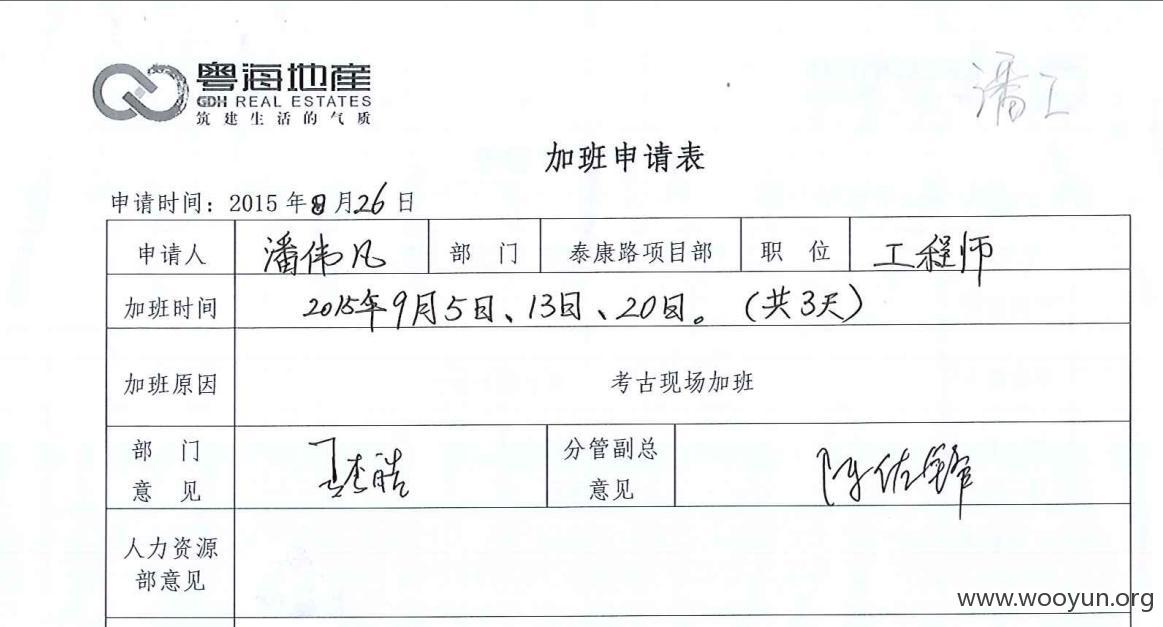 粤海地産
GDH REAL ESTATES
筑建生活的气质
潘工
加班申请表
申请时间：2015年8月26日
申请人 潘伟凡 部门 泰康路项目部 职位 工程师
加班时间 2015年9月5日、13日、20日。（共3天）
加班原因 考古现场加班
部门意见 分管副总意见
人力资源部意见
www.wooyun.org